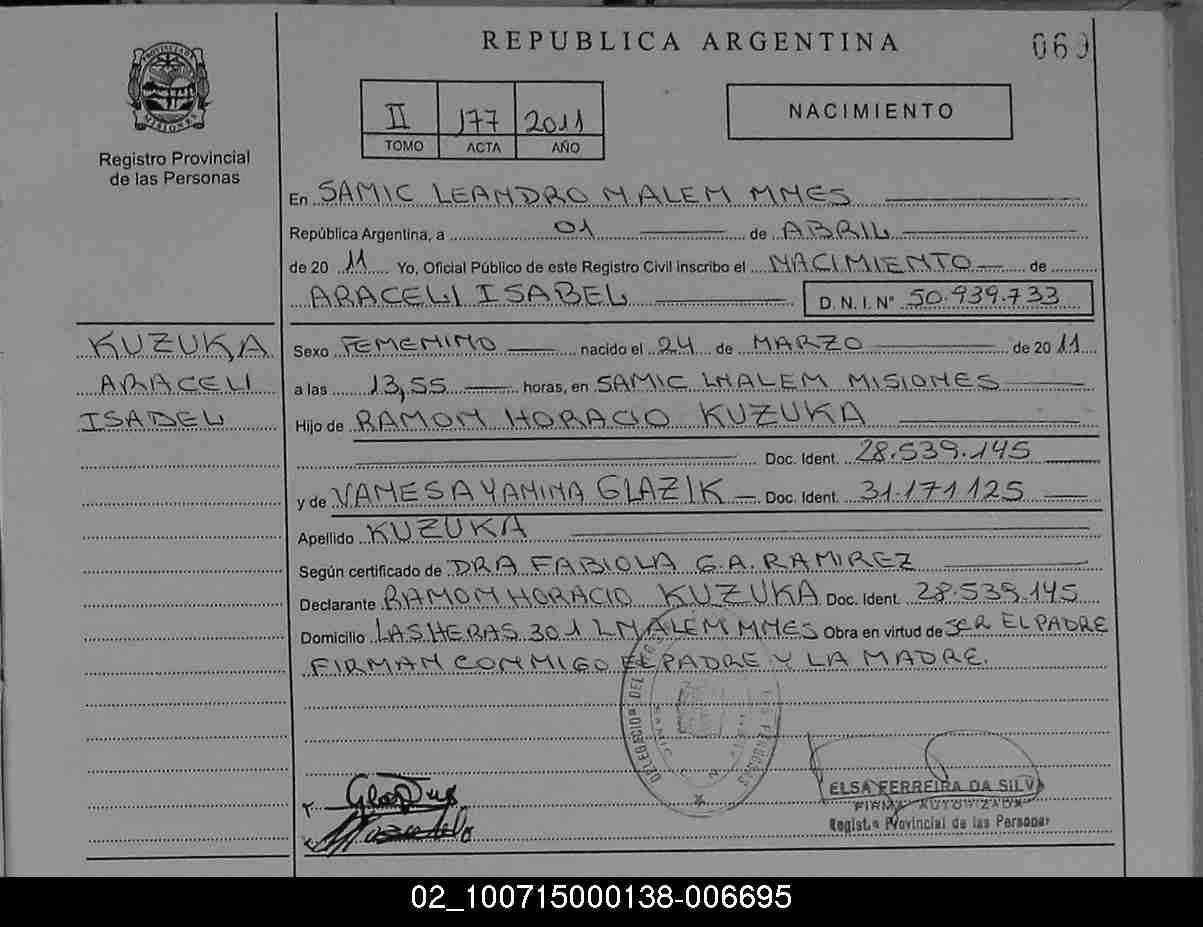 REPUBLICA ARGENTINA
060
PROVINCIA DE
MISIONES
Registro Provincial
de las Personas
II 177 2011
TOMO ACTA AÑO
NACIMIENTO
En SAMIC LEANDRO N ALEM MNES
República Argentina, a 01 de ABRIL
de 20 11 Yo, Oficial Público de este Registro Civil inscribo el NACIMIENTO de
ARACELI ISABEL D. N. I. N° 50.939.733
KUZUKA
ARACELI
ISABEL
Sexo FEMENINO nacido el 24 de MARZO de 20 11
a las 13,55 horas, en SAMIC LNALEM MISIONES
Hijo de RAMON HORACIO KUZUKA
Doc. Ident. 28.539.145
y de VANESA YANINA GLAZIK Doc. Ident. 31.171.125
Apellido KUZUKA
Según certificado de DRA FABIOLA G.A. RAMIREZ
Declarante RAMON HORACIO KUZUKA Doc. Ident. 28.539.145
Domicilio LAS HERAS 301 LNALEM MNES Obra en virtud de SER EL PADRE
FIRMAN CONMIGO EL PADRE Y LA MADRE.
DELEGACION DEL LAS PERSONAS
SAMIC
ELSA FERREIRA DA SILVA
FIRMA AUTORIZADA
Registro Provincial de las Personas
02_100715000138-006695